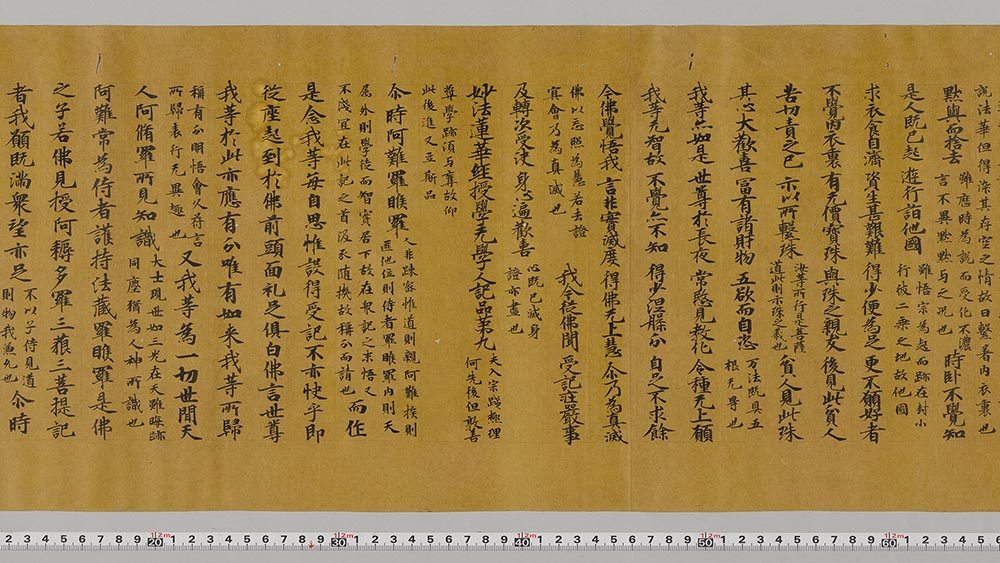 説法華但得除其存空之情故曰繫著內衣裏也
黙與而捨去 雖應時為説而受化不濃
言不異黙黙与之况也 時卧不覺知
是人既已起遊行詣他國 雖悟宗為起而跡在封小
行彼二乗之地故他國
求衣食自濟資生甚艱難得少便為足更不願好者
不覺內衣裏有无價寶珠與珠之親友後見此貧人
苦切責之已示以所繫珠 汝等所行是菩薩
道此則示珠之義也 貧人見此珠
其心大歡喜冨有諸財物五欲而自恣 万法既具五
根充也
我等亦如是世尊於長夜常愍見教化令種无上願
我等无智故不覺亦不知得少涅槃分自足不求餘
今佛覺悟我言非實滅度得佛无上慧尒乃為真滅
佛以忘照為慧若去證
冥會乃為真滅也 我今從佛聞受記莊嚴事
及轉次受決身心遍歡喜 心既已滅身
證亦盡也
妙法蓮華經授學无學人記品第九 夫入宗踐極理
何先後但敷善
尊學跡須与奪故仰
此後進又立斯品
尒時阿難羅睺羅 人非疎家惟道則親阿難則
匪他位則侍者羅睺羅內則天
属外則學徒而智實居下故在衆記之末悟又
不淺冝在此記之首故稱分而請也 而作
是念我等每自思惟設得受記不亦快乎即
從座起到於佛前頭面礼足俱白佛言世尊
我等於此亦應有分唯有如来我等所歸
稱有分明悟會久存言
所歸表行充異趣也 又我等為一切世間天
人阿脩羅所見知識 大士現世如三光在天雖晦跡
同塵稱為人神所識也
阿難常為侍者護持法藏羅睺羅是佛
之子若佛見授阿耨多羅三藐三菩提記
者我願既滿衆望亦足 不以子侍見道
則物我兼允也 尒時